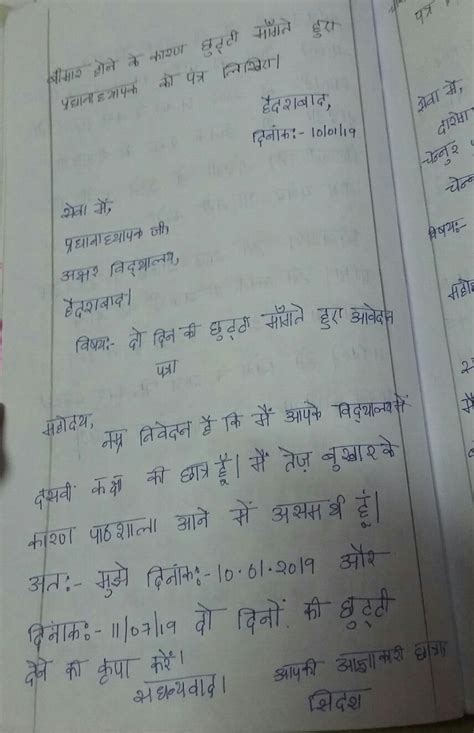 बीमार होने के कारण छुट्टी माँगते हुए
प्रधानाध्यापक को पत्र लिखिए।
हैदराबाद,
दिनांक:- 10/01/19
सेवा में,
प्रधानाध्यापक जी,
अक्षर विद्यालय,
हैदराबाद।
विषय:- दो दिन की छुट्टी माँगते हुए आवेदन
पत्र
महोदय,
नम्र निवेदन है कि मैं आपके विद्यालय में
दसवीं कक्षा की छात्र हूँ। मैं तेज़ बुखार के
कारण पाठशाला आने में असमर्थ हूं।
अत:- मुझे दिनांक:-10.01.2019 और
दिनांक:- 11/07/19 दो दिनों की छुट्टी
देने की कृपा करें।
सधन्यवाद।
आपकी आज्ञाकारी छात्रा
पत्र
सेवा में,
चेन्नूर
विषय:-